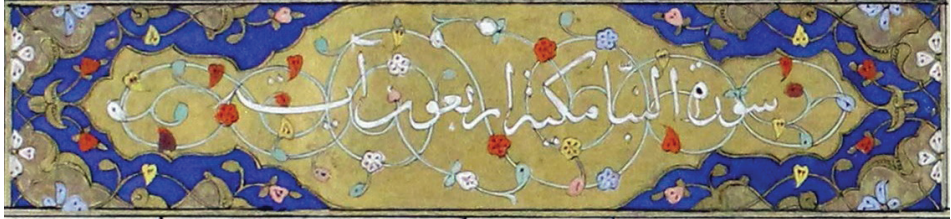 سورة النبا مكية اربعون آيات